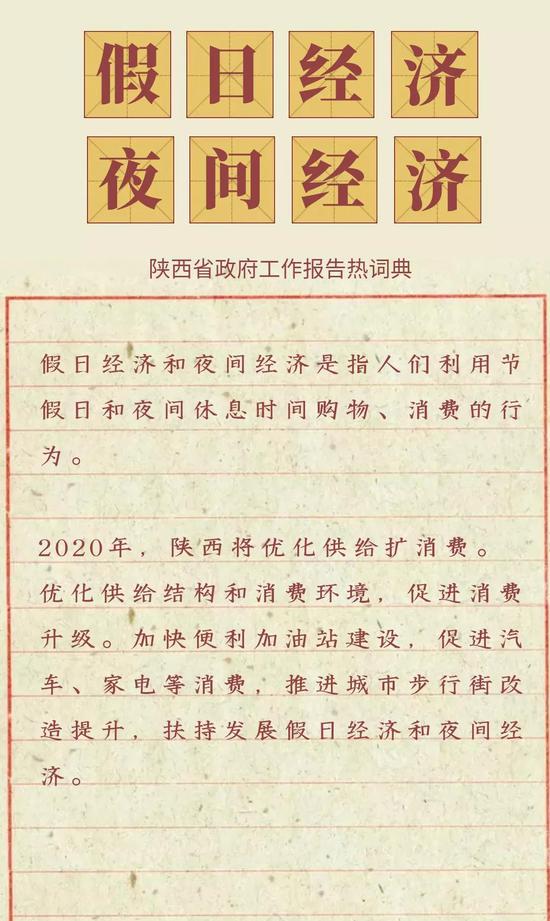 假日经济
夜间经济
陕西省政府工作报告热词典
假日经济和夜间经济是指人们利用节
假日和夜间休息时间购物、消费的行
为。
2020年，陕西将优化供给扩消费。
优化供给结构和消费环境，促进消费
升级。加快便利加油站建设，促进汽
车、家电等消费，推进城市步行街改
造提升，扶持发展假日经济和夜间经
济。